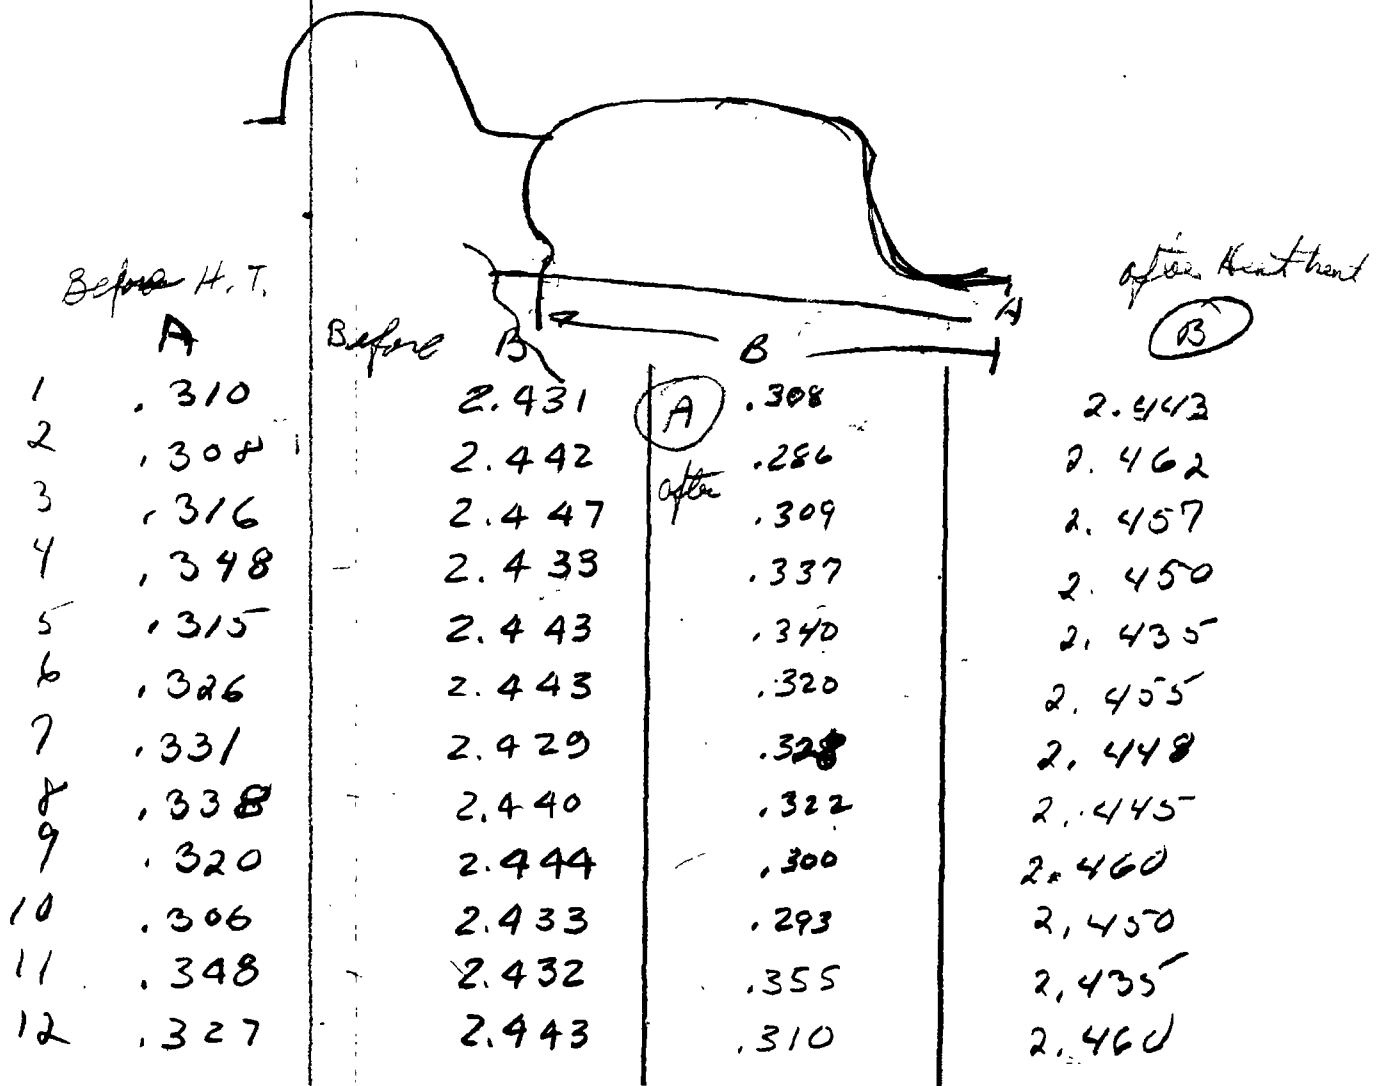 Before H.T. after Heat treat
A Before B B A B
1 .310 2.431 A .308 2.443
2 .308 2.442 .286 2.462
after
3 .316 2.447 .309 2.457
4 .348 2.433 .337 2.450
5 .315 2.443 .340 2.435
6 .326 2.443 .320 2.455
7 .331 2.429 .328 2.448
8 .338 2.440 .322 2.445
9 .320 2.444 .300 2.460
10 .306 2.433 .293 2.450
11 .348 2.432 .355 2.435
12 .327 2.443 .310 2.460